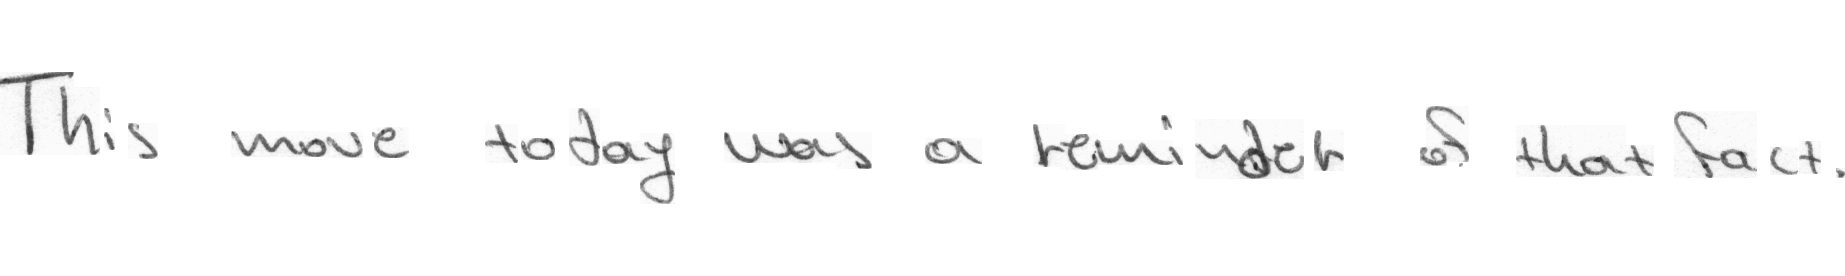 This move today was a reminder of that fact.